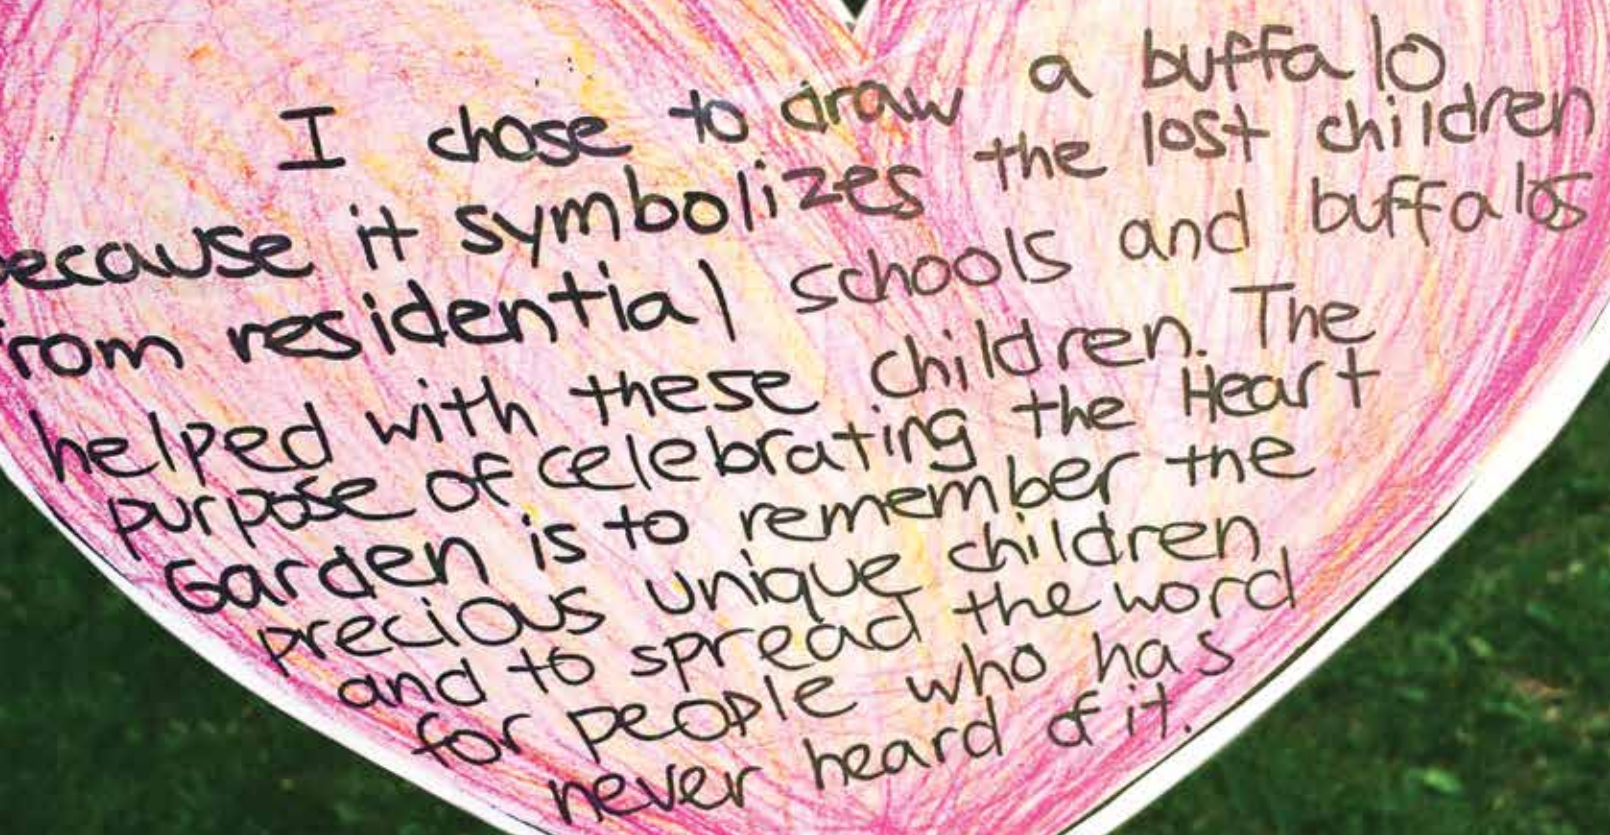 I chose to draw a buffalo
ecause it symbolizes the lost children
rom residential schools and buffalos
helped with these children. The
purpose of celebrating the Heart
Garden is to remember the
precious unique children,
and to spread the word
for people who has
never heard of it.